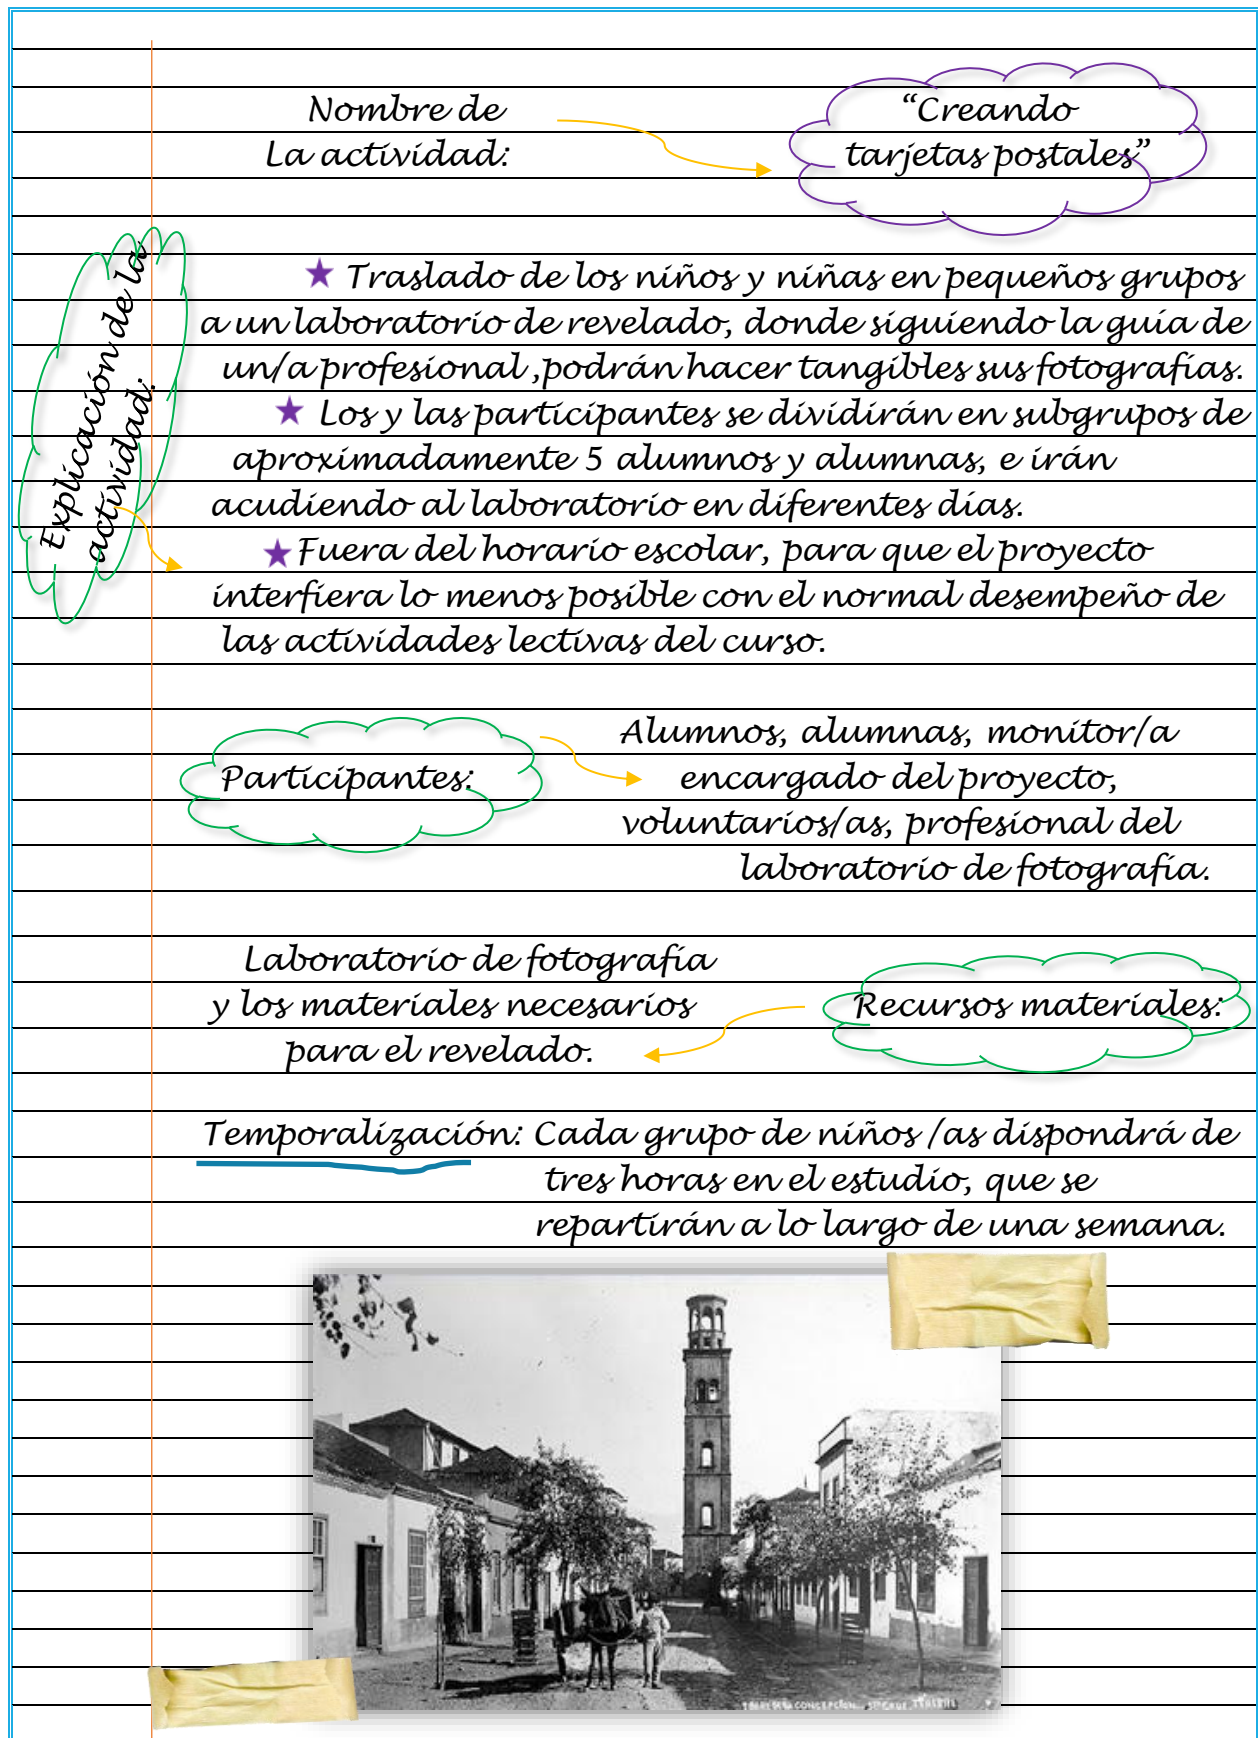 Nombre de
La actividad:
“Creando
tarjetas postales”
Explicación de la
actividad:
Traslado de los niños y niñas en pequeños grupos
a un laboratorio de revelado, donde siguiendo la guía de
un/a profesional ,podrán hacer tangibles sus fotografías.
Los y las participantes se dividirán en subgrupos de
aproximadamente 5 alumnos y alumnas, e irán
acudiendo al laboratorio en diferentes días.
Fuera del horario escolar, para que el proyecto
interfiera lo menos posible con el normal desempeño de
las actividades lectivas del curso.
Participantes:
Alumnos, alumnas, monitor/a
encargado del proyecto,
voluntarios/as, profesional del
laboratorio de fotografía.
Recursos materiales:
Laboratorio de fotografía
y los materiales necesarios
para el revelado.
Temporalización: Cada grupo de niños /as dispondrá de
tres horas en el estudio, que se
repartirán a lo largo de una semana.
CONCEPCIÓN